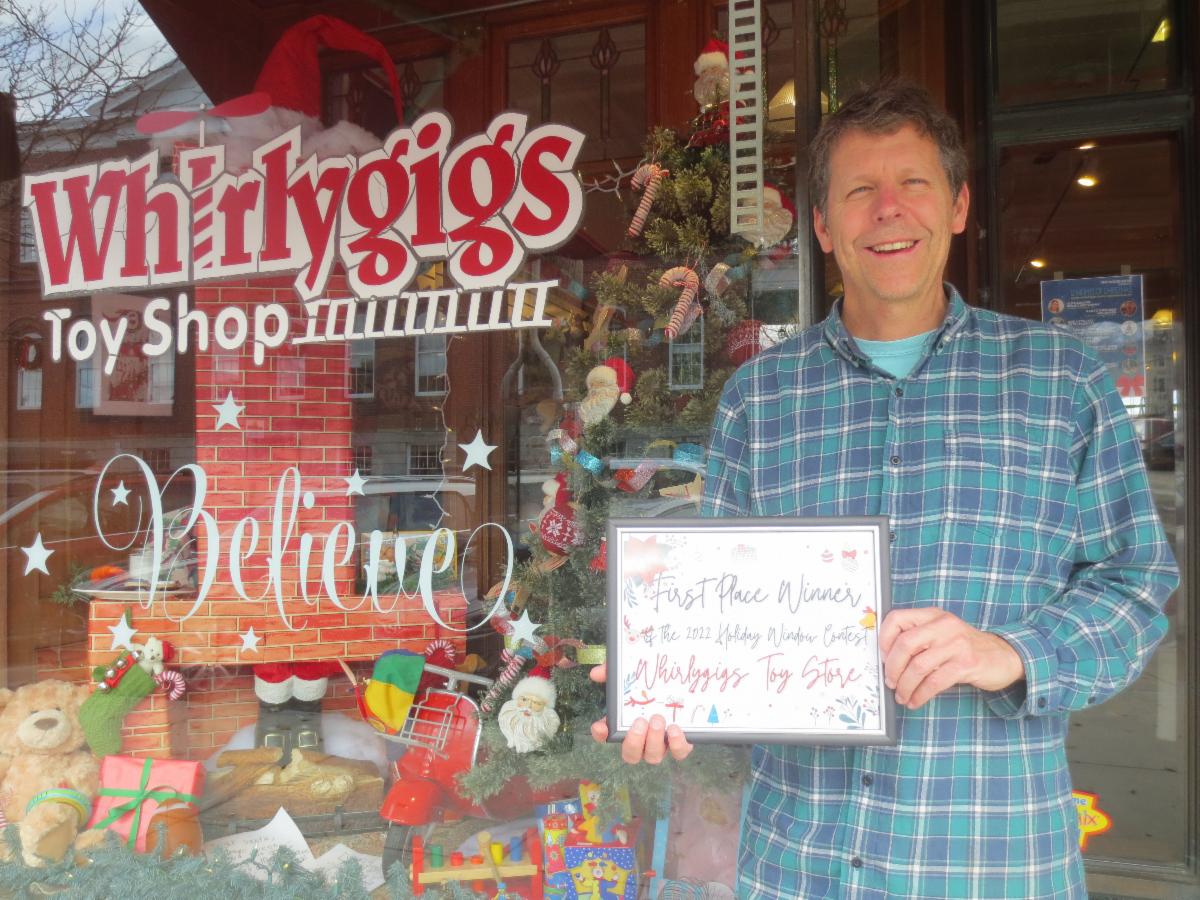 Whirlygigs
Toy Shop
Believe
First Place Winner
of the 2022 Holiday Window Contest
Whirlygigs Toy Store